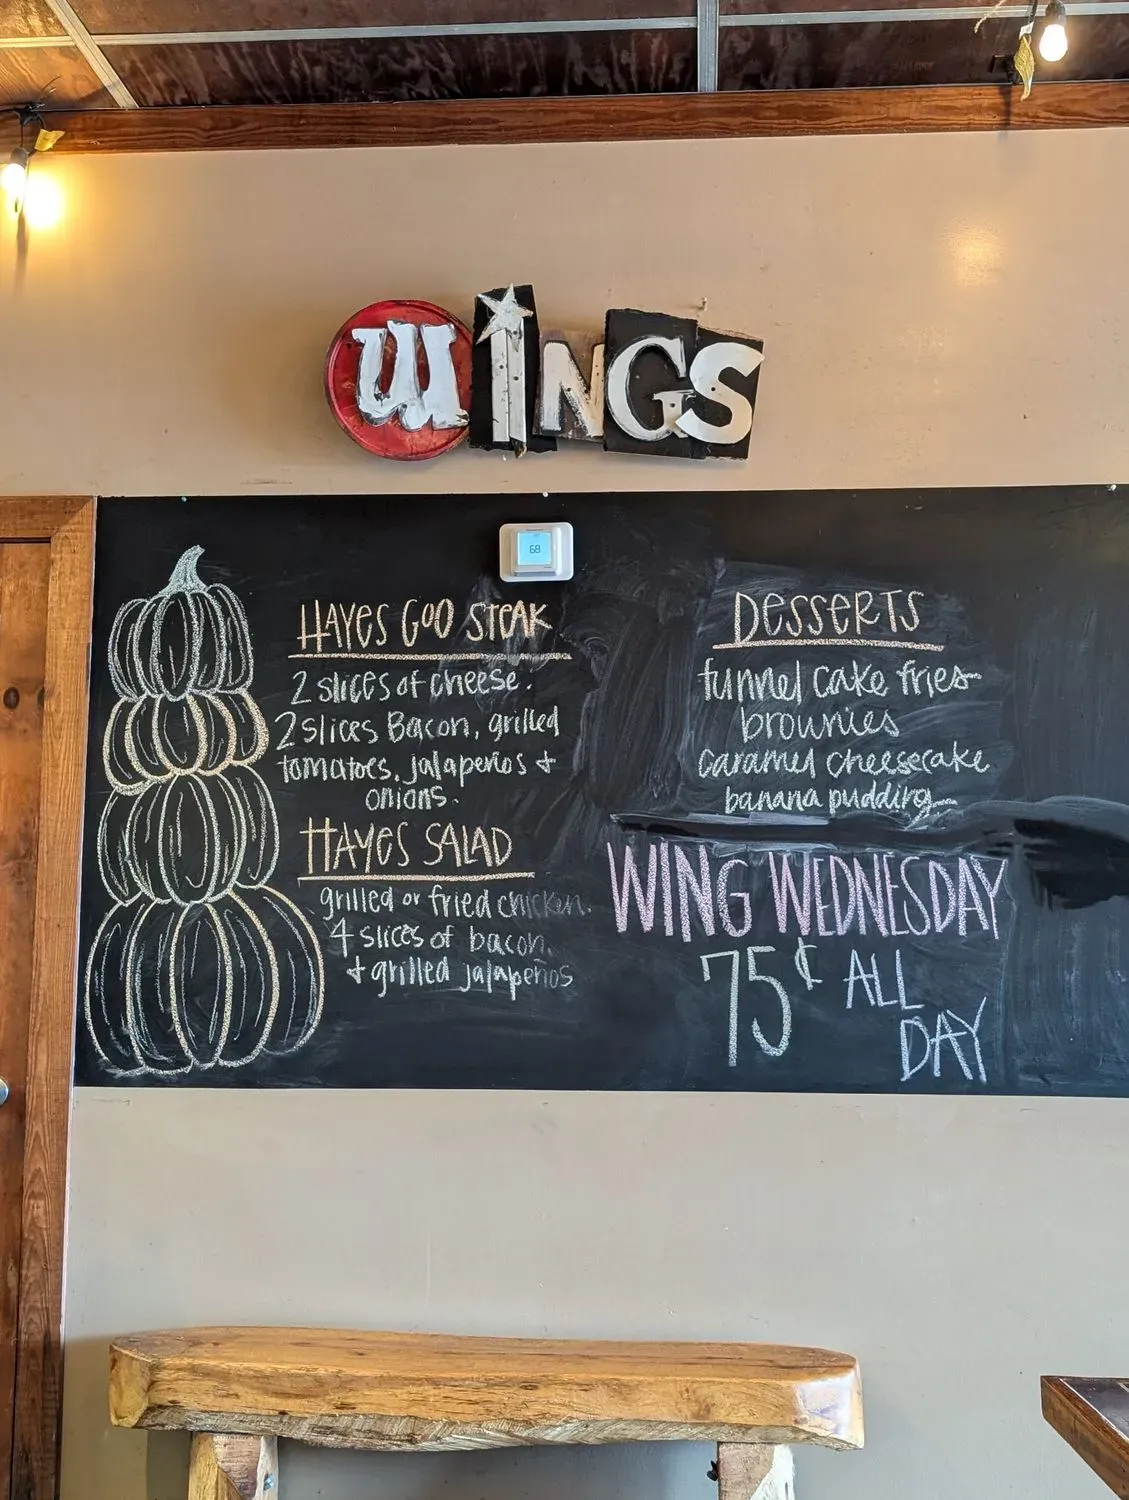 WiNGS
68
HAYES GOO STEAK
2 slices of cheese.
2 slices Bacon, grilled
tomatoes, jalapeños +
onions.
HAYES SALAD
grilled or fried chicken.
4 slices of bacon.
+ grilled jalapeños
DESSERTS
funnel cake fries
brownies
caramel cheesecake
banana pudding
WING WEDNESDAY
75¢ ALL
DAY